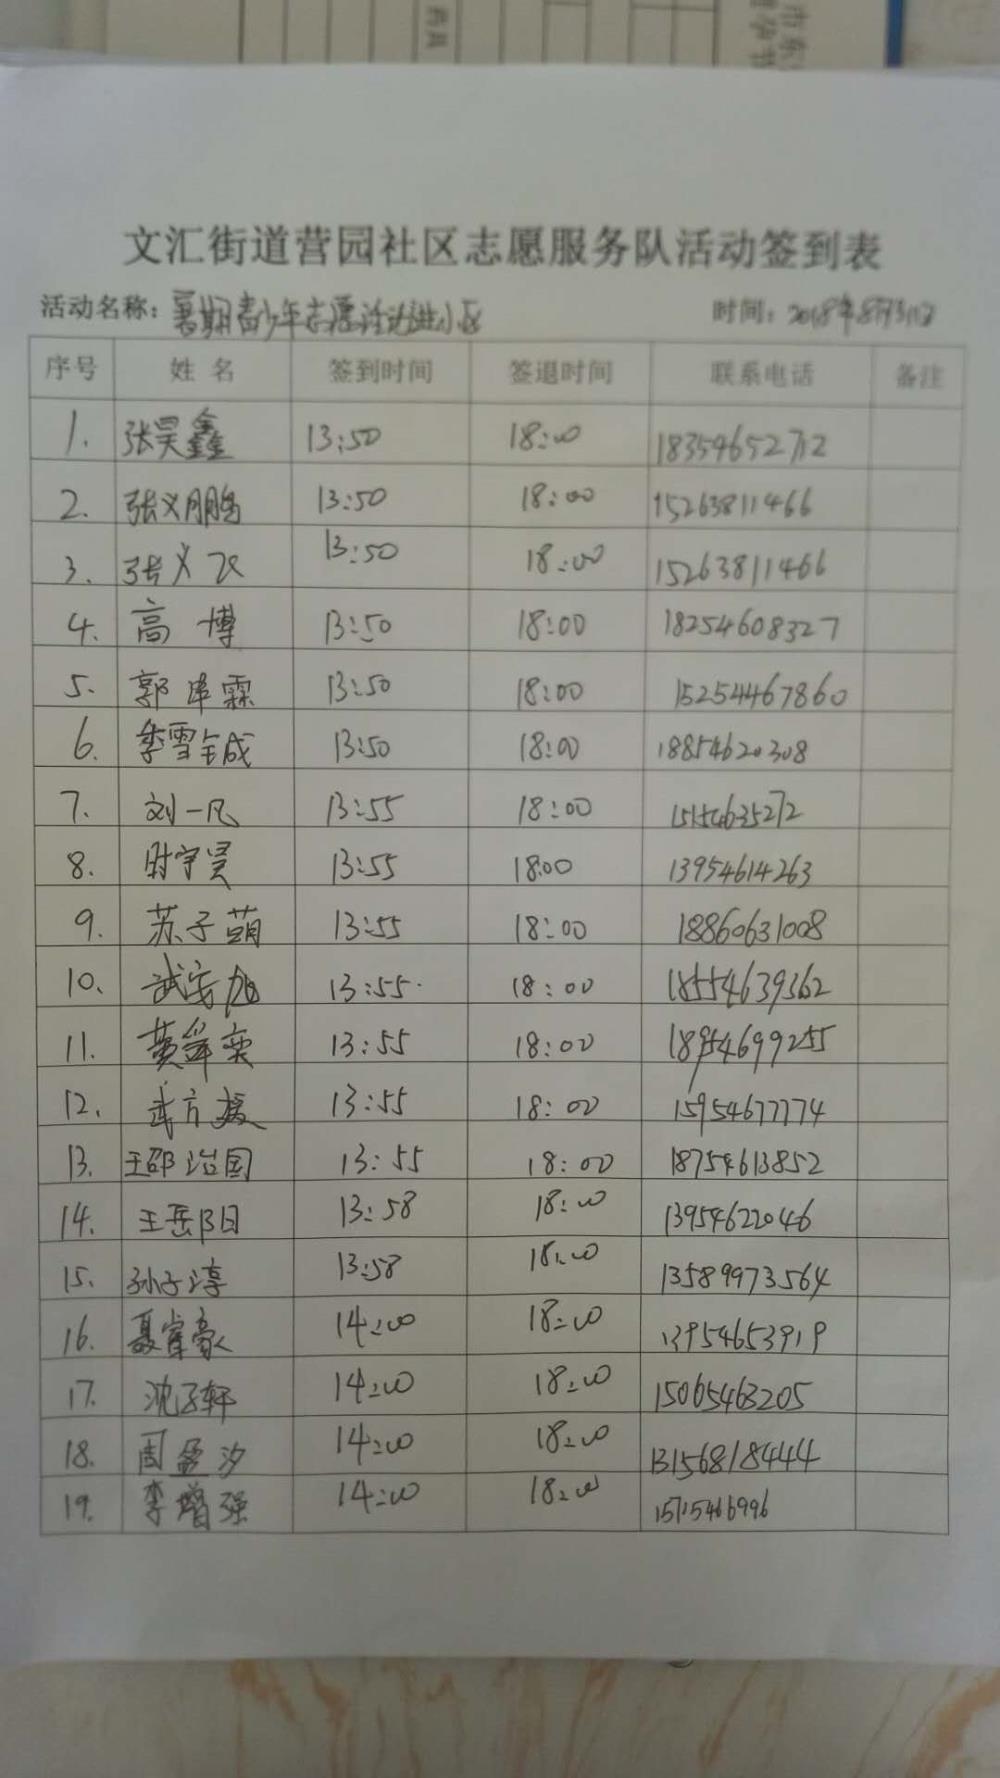 文汇街道营园社区志愿服务队活动签到表
活动名称：暑期青少年志愿活动进小区 时间：2018年8月31日
序号 姓名 签到时间 签退时间 联系电话 备注
1. 张昊鑫 13:50 18:00 18354652712
2. 张义鹏 13:50 18:00 15263811466
3. 张义飞 13:50 18:00 15263811466
4. 高博 13:50 18:00 18254608327
5. 郭聿霖 13:50 18:00 15254467860
6. 季雪成 13:50 18:00 18854620308
7. 刘一凡 13:55 18:00 15154635272
8. 时宇昊 13:55 18:00 13954614263
9. 苏子萌 13:55 18:00 18860631008
10. 武 13:55 18:00 18554639362
11. 黄奕 13:55 18:00 18954699255
12. 武方 13:55 18:00 15954677774
13. 王邵治国 13:55 18:00 18754613852
14. 王岳阳 13:58 18:00 13954622046
15. 孙子淳 13:58 18:00 13589973564
16. 聂睿豪 14:00 18:00 13954653919
17. 沈子轩 14:00 18:00 15065463205
18. 周盈汐 14:00 18:00 13156818444
19. 李增强 14:00 18:00 15715466996